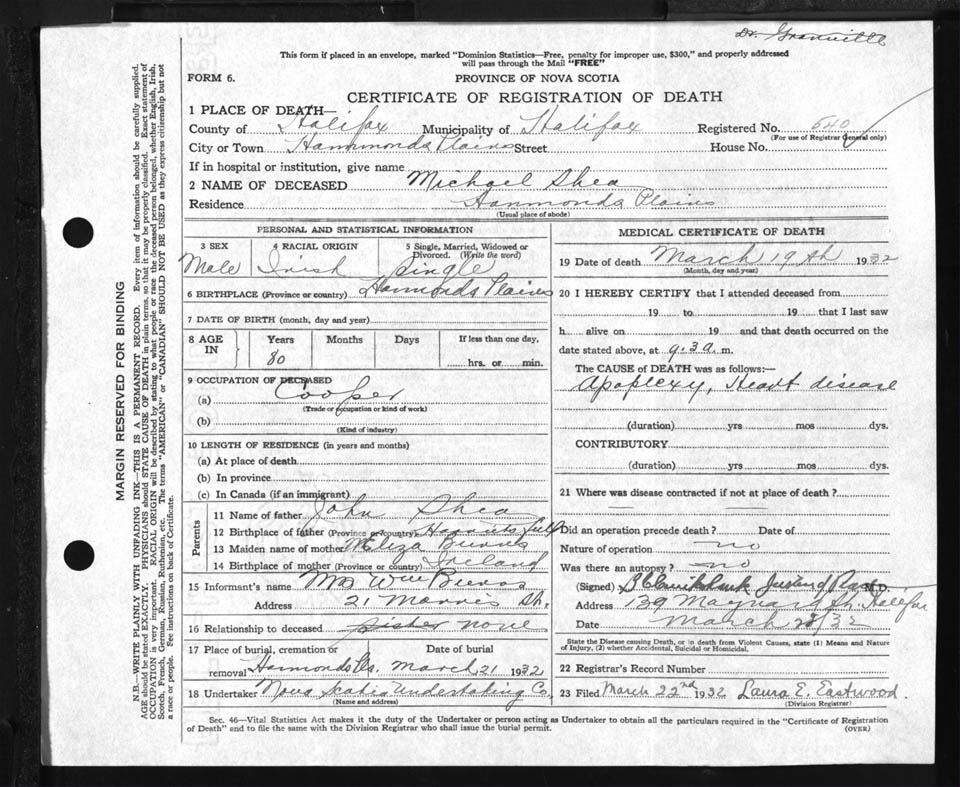 Dr. Granville
This form if placed in an envelope, marked "Dominion Statistics—Free, penalty for improper use, $300," and properly addressed
will pass through the Mail "FREE"
FORM 6.
PROVINCE OF NOVA SCOTIA
CERTIFICATE OF REGISTRATION OF DEATH
1 PLACE OF DEATH—
County of Halifax Municipality of Halifax Registered No. 640
(For use of Registrar General only)
City or Town Hammonds Plains Street House No.
If in hospital or institution, give name
2 NAME OF DECEASED Michael Shea
Residence Hammonds Plains
(Usual place of abode)
PERSONAL AND STATISTICAL INFORMATION
3 SEX 4 RACIAL ORIGIN 5 Single, Married, Widowed or Divorced. (Write the word)
Male Irish Single
6 BIRTHPLACE (Province or country) Hammonds Plains
7 DATE OF BIRTH (month, day and year)
8 AGE IN Years Months Days If less than one day,
80 hrs. or min.
9 OCCUPATION OF DECEASED
(a) Cooper
(Trade or occupation or kind of work)
(b)
(Kind of industry)
10 LENGTH OF RESIDENCE (in years and months)
(a) At place of death
(b) In province
(c) In Canada (if an immigrant)
Parents
11 Name of father John Shea
12 Birthplace of father (Province or country)
13 Maiden name of mother Eliza Burns
14 Birthplace of mother (Province or country) Ireland
15 Informant's name Mrs Wm Burns
Address 21 Morris St.
16 Relationship to deceased sister none
17 Place of burial, cremation or removal Date of burial
Hammonds Pls. March 21 1932
18 Undertaker Nova Scotia Undertaking Co.
(Name and address)
MEDICAL CERTIFICATE OF DEATH
19 Date of death March 19th 1932
(Month, day and year)
20 I HEREBY CERTIFY that I attended deceased from
19 to 19 that I last saw
h alive on 19 and that death occurred on
date stated above, at 9.30 a. m.
The CAUSE of DEATH was as follows:
Apoplexy, Heart disease
(duration) yrs mos dys.
CONTRIBUTORY
(duration) yrs mos dys.
21 Where was disease contracted if not at place of death?
Did an operation precede death? Date of
Nature of operation no
Was there an autopsy? no
(Signed) M.D.
Address 139 Maynard St. Halifax
Date March /32
State the Disease causing Death, or in death from Violent Causes, state (1) Means and Nature
of Injury, (2) whether Accidental, Suicidal or Homicidal.
22 Registrar's Record Number
23 Filed March 22nd 1932 Laura E. Eastwood.
(Division Registrar)
Sec. 46—Vital Statistics Act makes it the duty of the Undertaker or person acting as Undertaker to obtain all the particulars required in the "Certificate of Registration
of Death" and to file the same with the Division Registrar who shall issue the burial permit. (OVER)
MARGIN RESERVED FOR BINDING
N.B.—WRITE PLAINLY WITH UNFADING INK—THIS IS A PERMANENT RECORD. Every item of information should be carefully supplied.
AGE should be stated EXACTLY. PHYSICIANS should STATE CAUSE OF DEATH in plain terms, so that it may be properly classified. Exact statement of
OCCUPATION is very important. RACIAL ORIGIN will be described by stating to what people or race the deceased person belonged, whether English, Irish,
Scotch, French, German, Russian, Ruthenian, etc. The terms "AMERICAN" or "CANADIAN" SHOULD NOT BE USED as they express citizenship but not
a race or people. See instructions on back of Certificate.